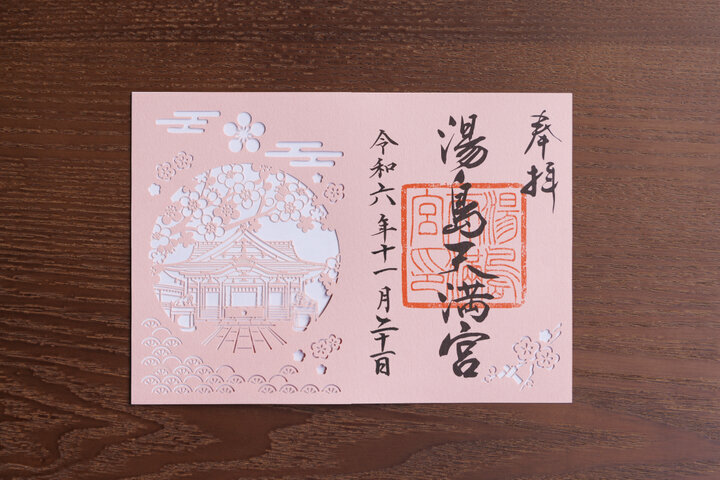 奉拝
湯島天満宮
令和六年十一月二十一日